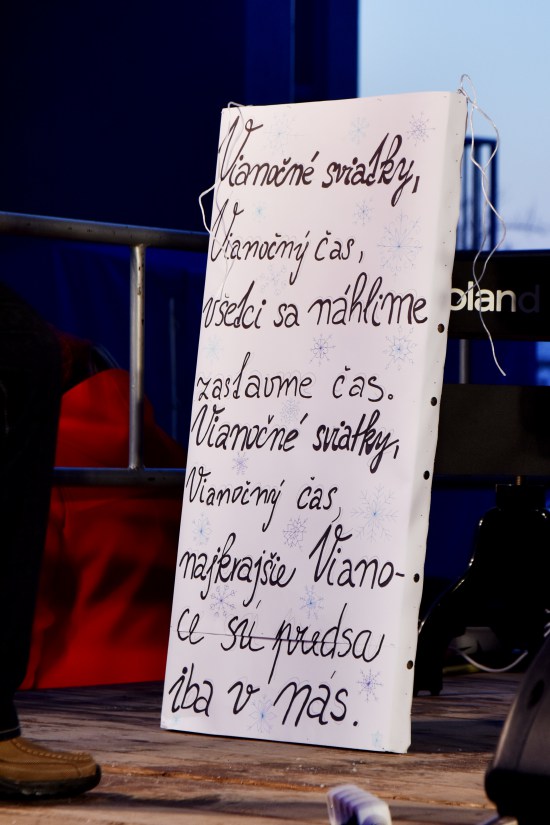 Vianočné sviatky,
Vianočný čas,
všetci sa náhlime
zastavme čas.
Vianočné sviatky,
Vianočný čas,
najkrajšie Viano-
ce sú predsa
iba v nás.
oland